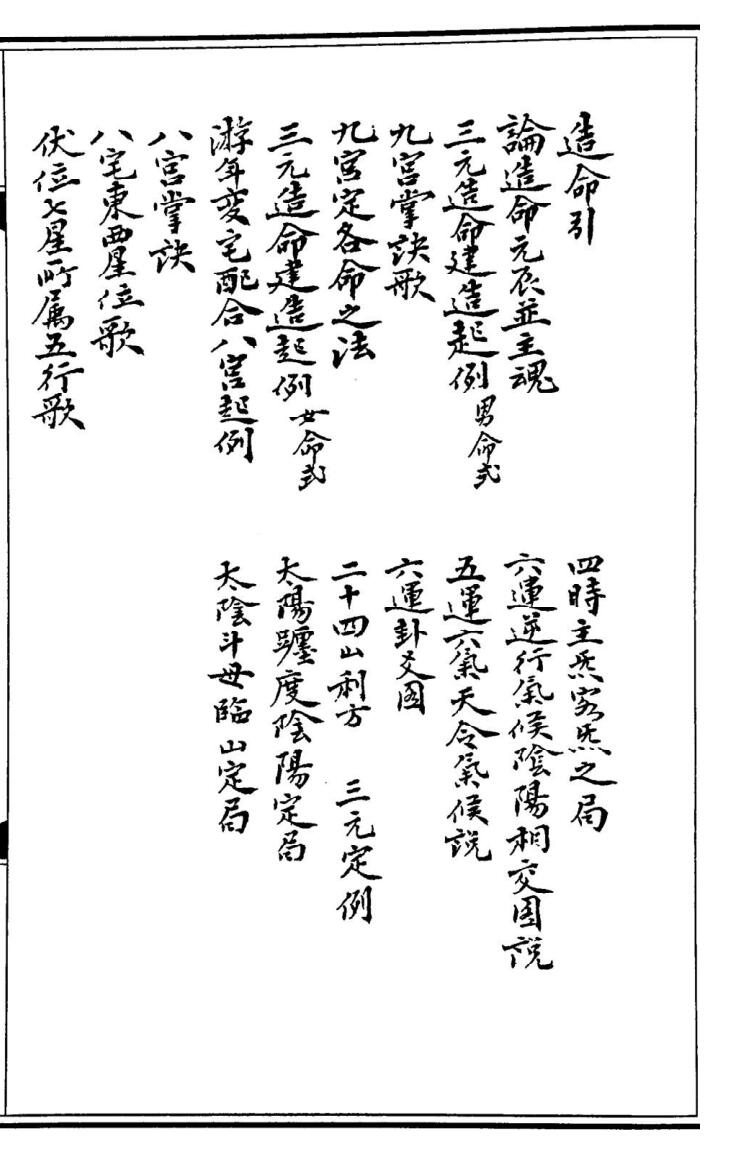 造命引
論造命元辰並主魂
三元造命建造起例 男命式
九宮掌訣歌
九宮定各命之法
三元造命建造起例 女命式
游年変宅配合八宮起例
八宮掌訣
八宅東西星位歌
伏位七星所属五行歌
四時主炁客炁之局
六運逆行氣候陰陽相交图說
五運六氣天令氣候說
六運卦爻图
二十四山利方 三元定例
太陽躔度陰陽定局
太陰斗母臨山定局